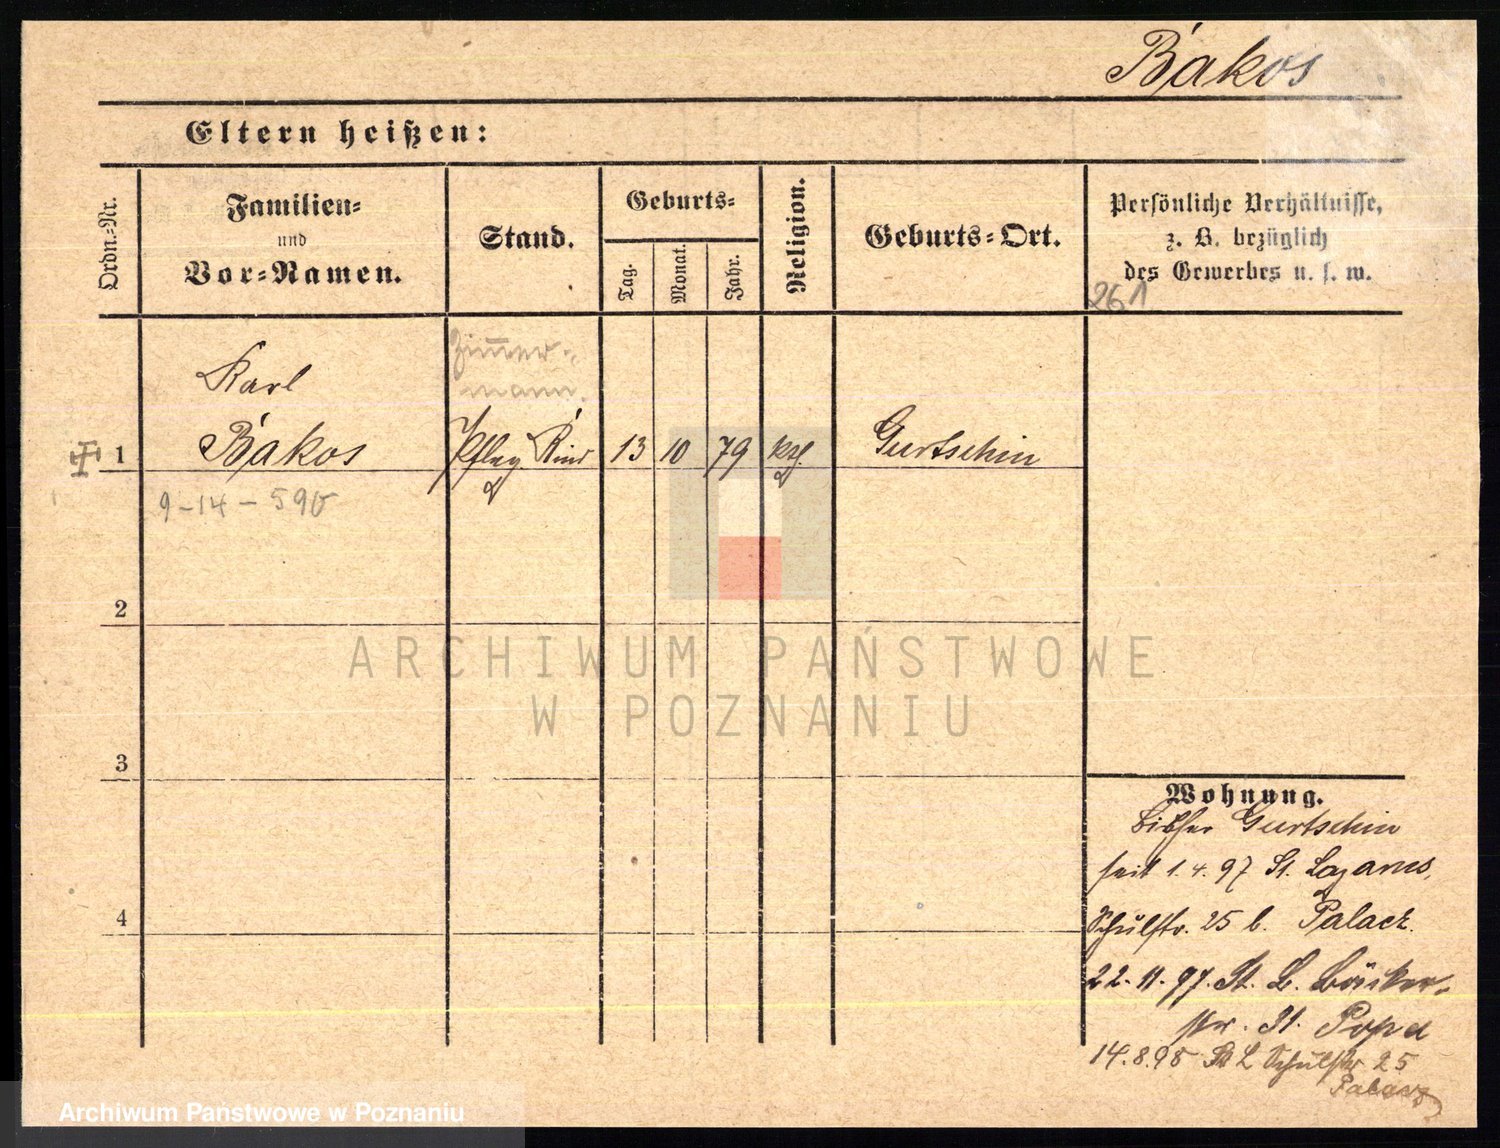 Bąkos
Eltern heißen:
Ordn.-Nr.
Familien-
und
Vor-Namen.
Stand.
Geburts-
Tag.
Monat.
Jahr.
Religion.
Geburts-Ort.
Persönliche Verhältnisse,
z. B. bezüglich
des Gewerbes u. s. w.
261
Zimmer-
mann.
Karl
1 Bąkos Pfleg Kind 13 10 79 kth. Gurtschin
9-14-590
2
3
4
Wohnung.
bisher Gurtschin
seit 1.4.97 St. Lazarus,
Schulstr. 25 b. Palacz.
22.11.97. St. L.
str. 31. Popel
14.8.98 St L Schulstr 25
Palacz
ARCHIWUM PAŃSTWOWE
W POZNANIU
Archiwum Państwowe w Poznaniu